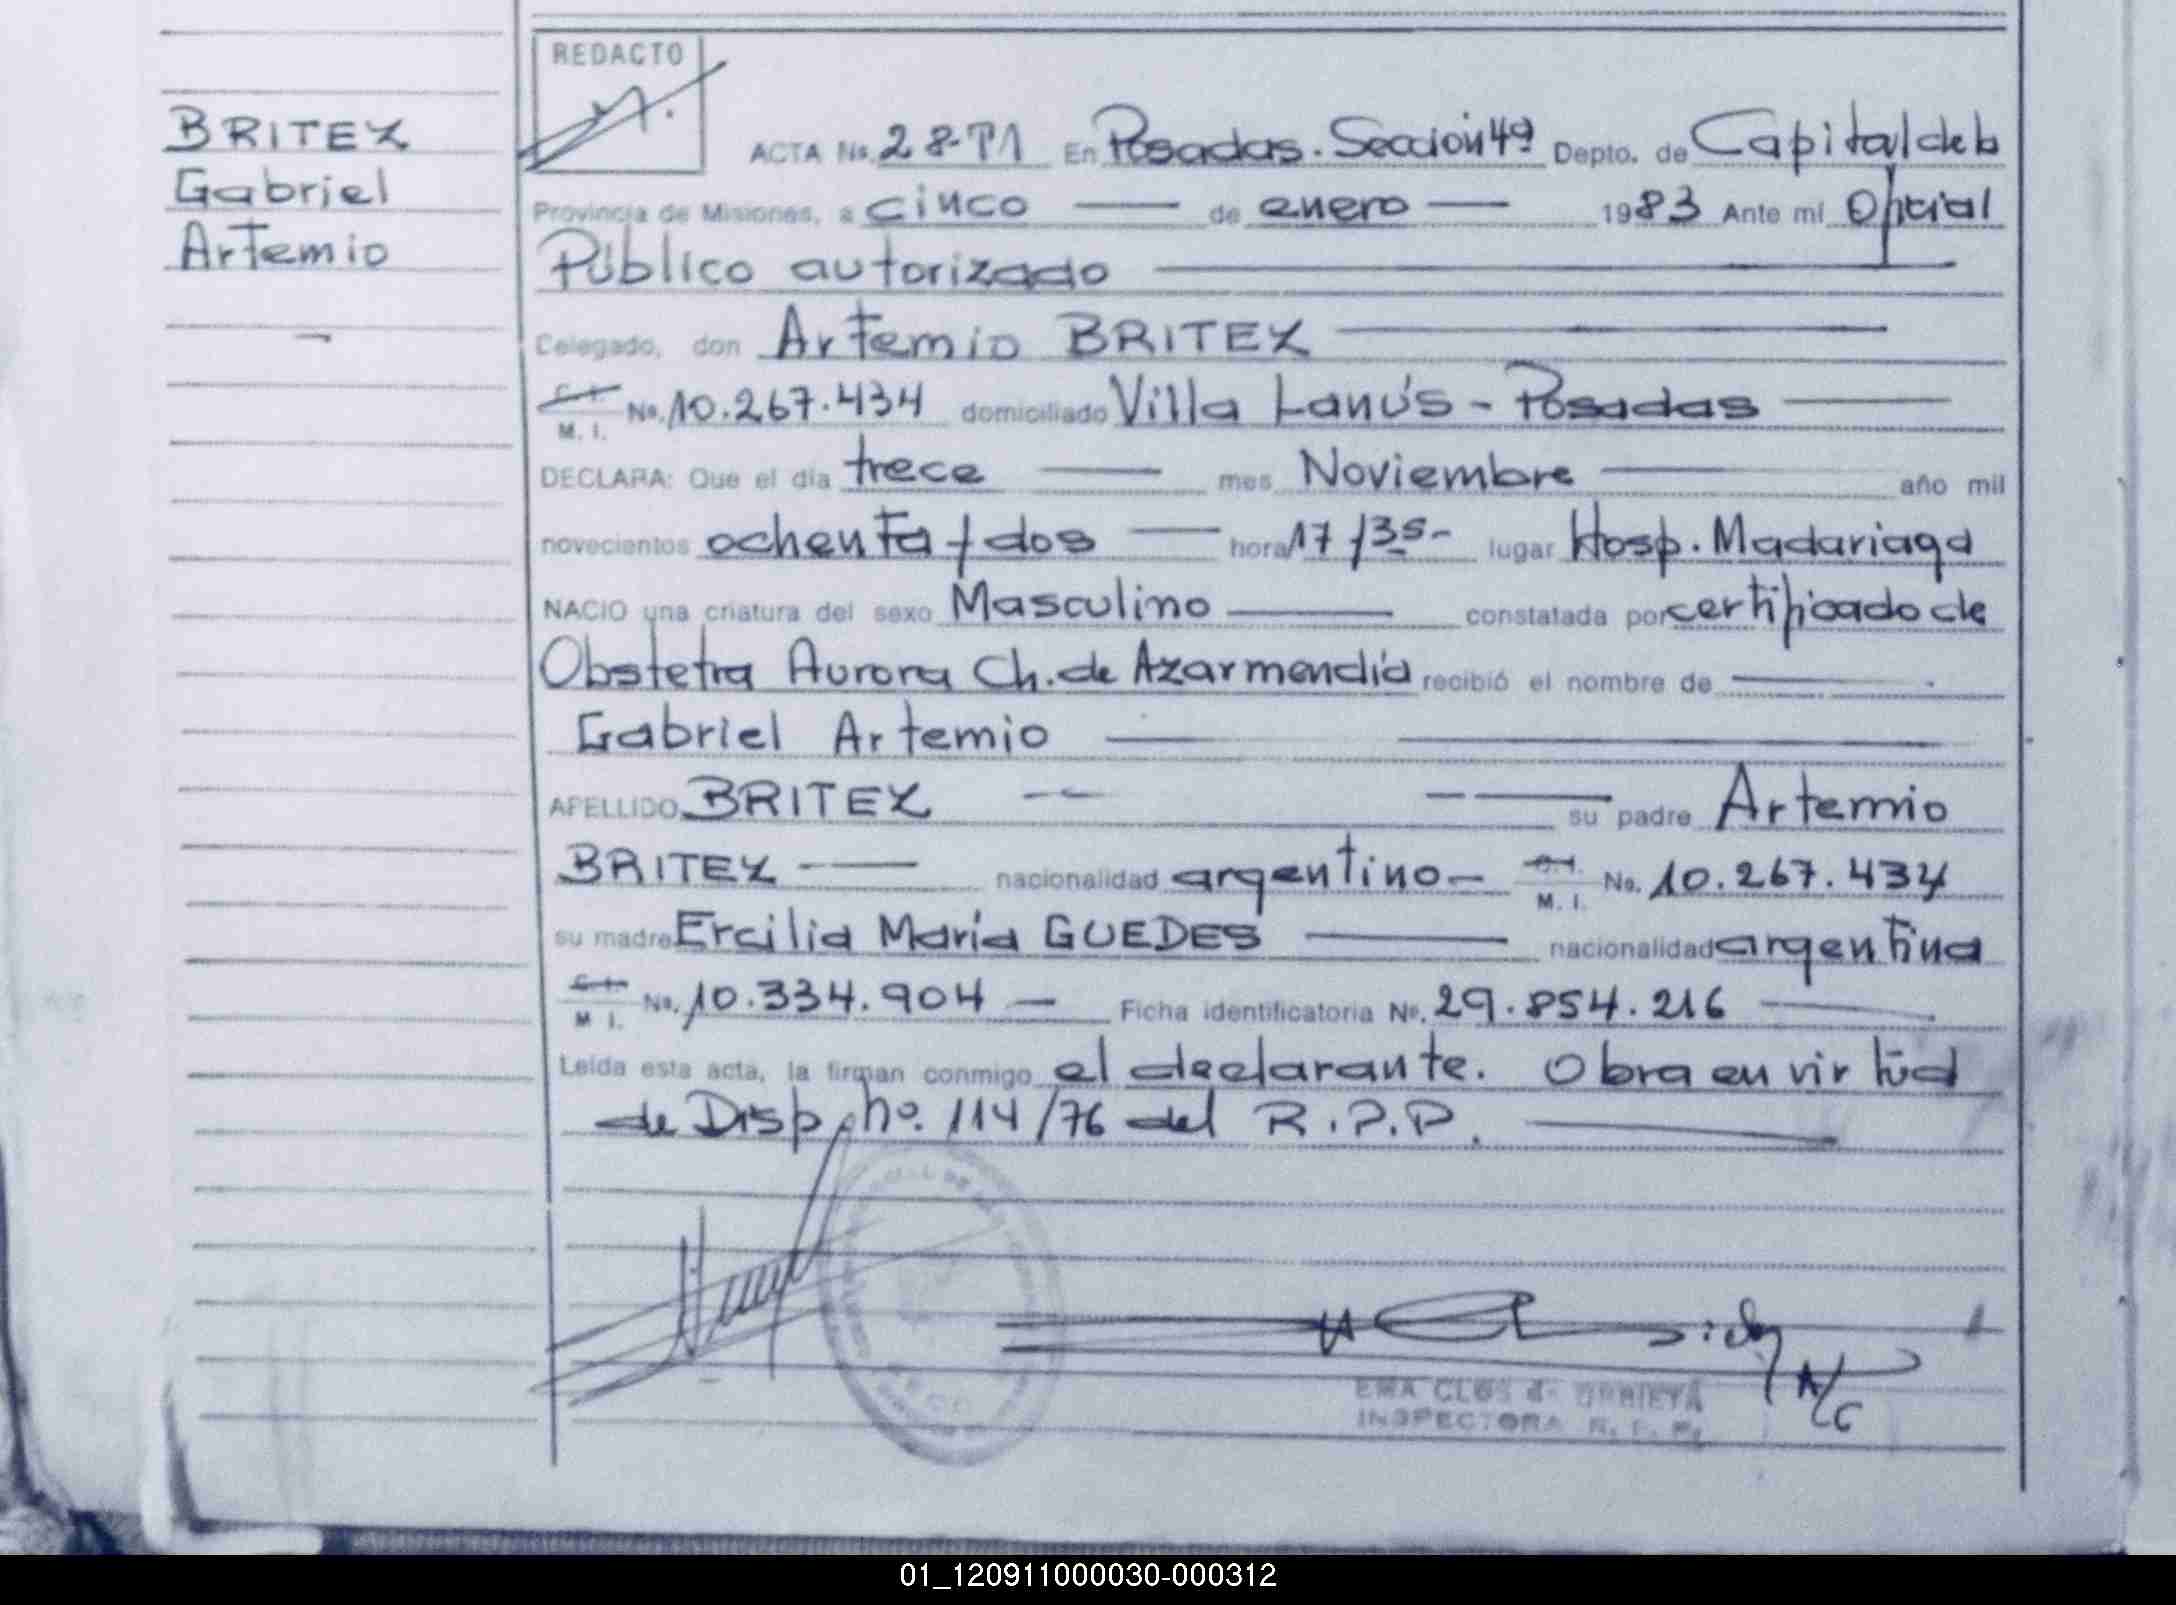 REDACTO
BRITEZ
Gabriel
Artemio
ACTA No. 28-T1 En Posadas. Sección 4ª Depto. de Capital de la
Provincia de Misiones, a cinco de enero 1983 Ante mí Oficial
Público autorizado
Delegado, don Artemio BRITEZ
C. I. M. I. No. 10.267.434 domiciliado Villa Lanús - Posadas
DECLARA: Que el día trece mes Noviembre año mil
novecientos ochenta y dos hora 17/35- lugar Hosp. Madariaga
NACIO una criatura del sexo Masculino constatada por certificado de
Obstetra Aurora Ch. de Azarmendia recibió el nombre de
Gabriel Artemio
APELLIDO BRITEZ su padre Artemio
BRITEZ nacionalidad argentino - C. I. M. I. No. 10.267.434
su madre Ercilia María GUEDES nacionalidad argentina
C. I. M. I. No. 10.334.904 - Ficha identificatoria No. 29.854.216
Leída esta acta, la firman conmigo el declarante. Obra en virtud
de Disp. no. 114/76 del R.P.P.
A/C
EMA CLOS de URRIETA
INSPECTORA R. P. P.
01_120911000030-000312